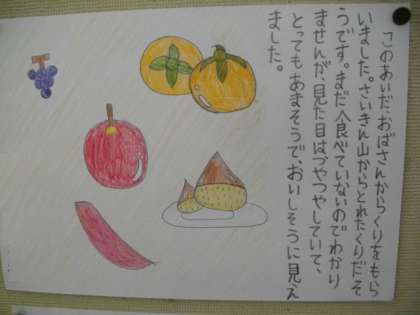 「このあいだ、おばさんからくりをもら
いました。さいきん山からとれたくりだそ
うです。まだ食べていないのでわかり
ませんが、見た目はつやつやしていて、
とってもあまそうで、おいしそうに見え
ました。